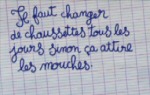 Je faut changer
de chaussettes tous les
jours sinon ça attire
les mouches.